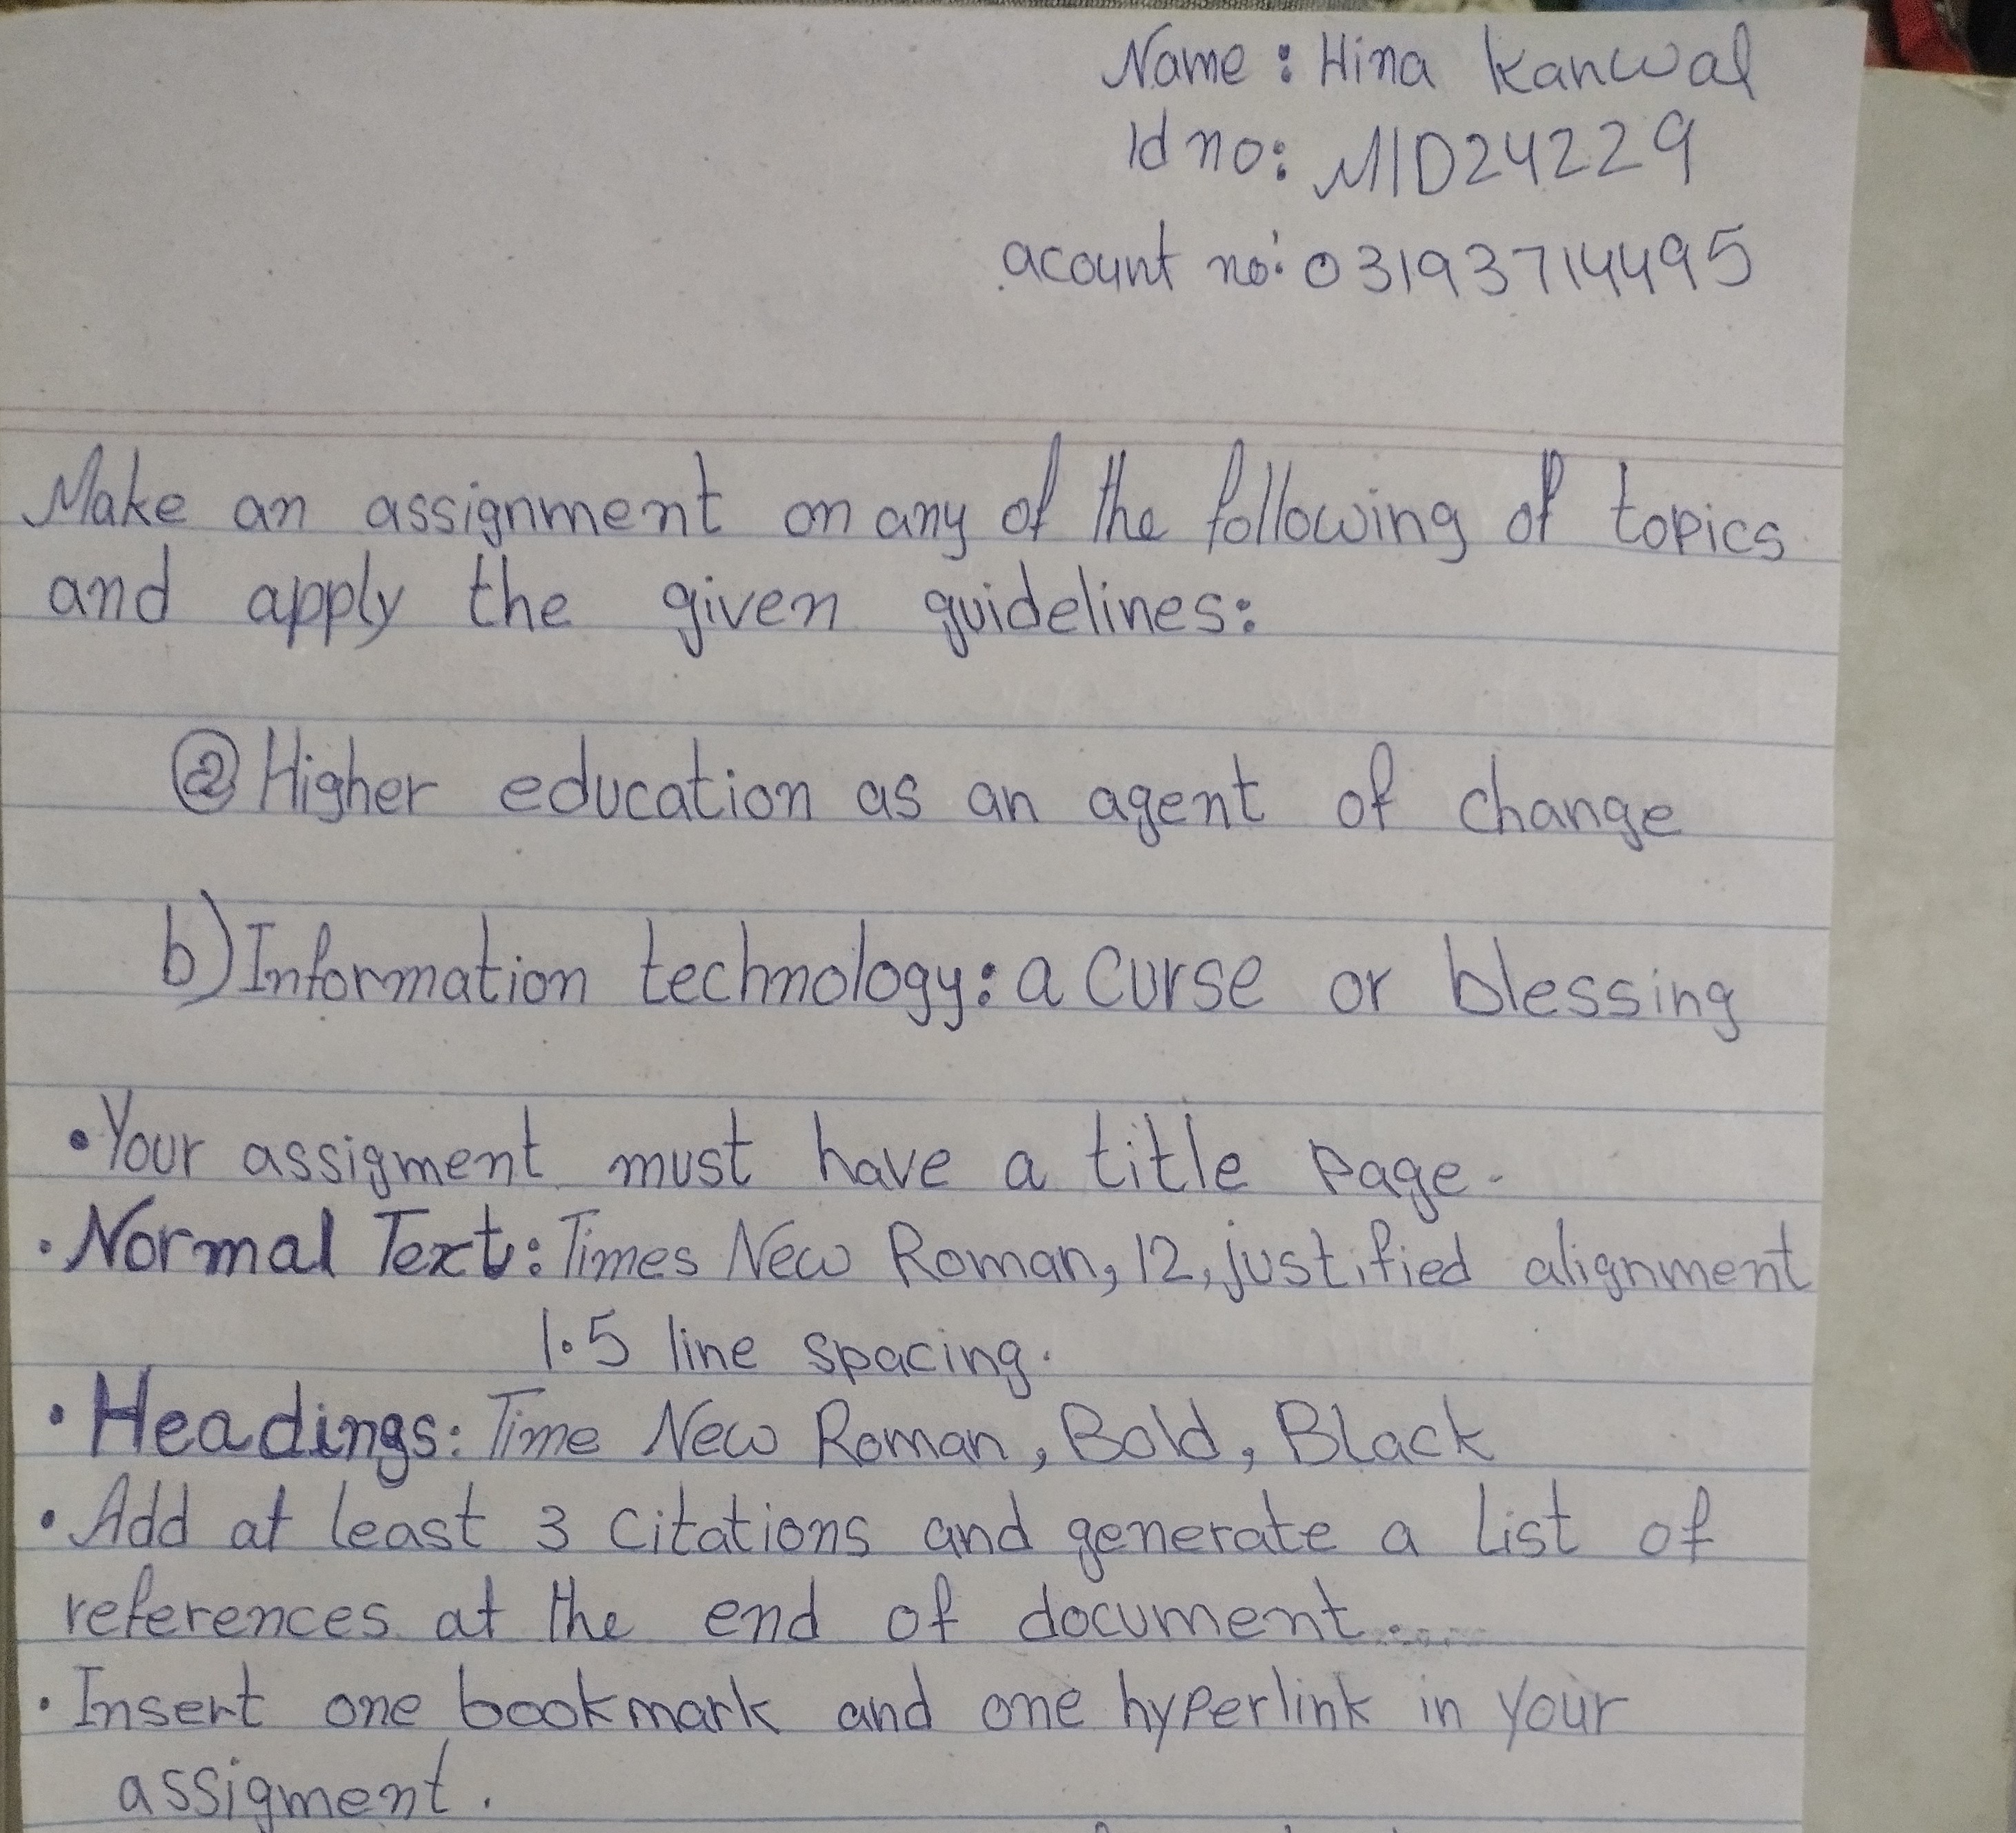 Name : Hina Kanwal
Id no: MID24229
acount no: 03193714495
Make an assignment on any of the following of topics
and apply the given guidelines:
a Higher education as an agent of change
b) Information technology: a curse or blessing
• Your assigment must have a title page.
• Normal Text: Times New Roman, 12, justified alignment
1.5 line spacing.
• Headings: Time New Roman, Bold, Black
• Add at least 3 citations and generate a list of
references at the end of document...
• Insert one bookmark and one hyperlink in your
assigment.